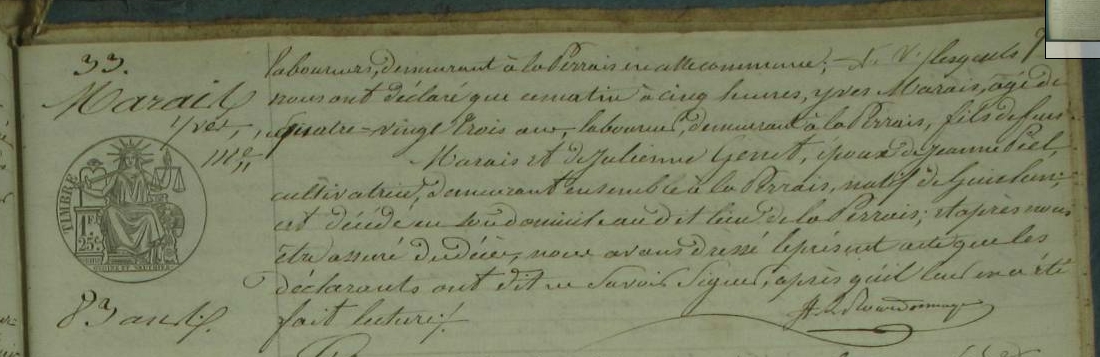 33.
Marais
Yves,
TIMBRE
1F.
25C.
83 ans.
laboureurs, demeurant à la Perrais en cette commune; lesquels
nous ont déclaré que ce matin à cinq heures, Yves Marais, âgé de
quatre-vingt trois ans, laboureur, demeurant à la Perrais, fils de feus
Marais et de Julienne Genet, époux de Jeanne Piel,
cultivatrice, demeurant ensemble à la Perrais, natif de
est décédé en son domicile au dit lieu de la Perrais; et après nous
être assuré du décès, nous avons dressé le présent acte que les
déclarants ont dit ne savoir signer, après qu'il leur en a été
fait lecture./.